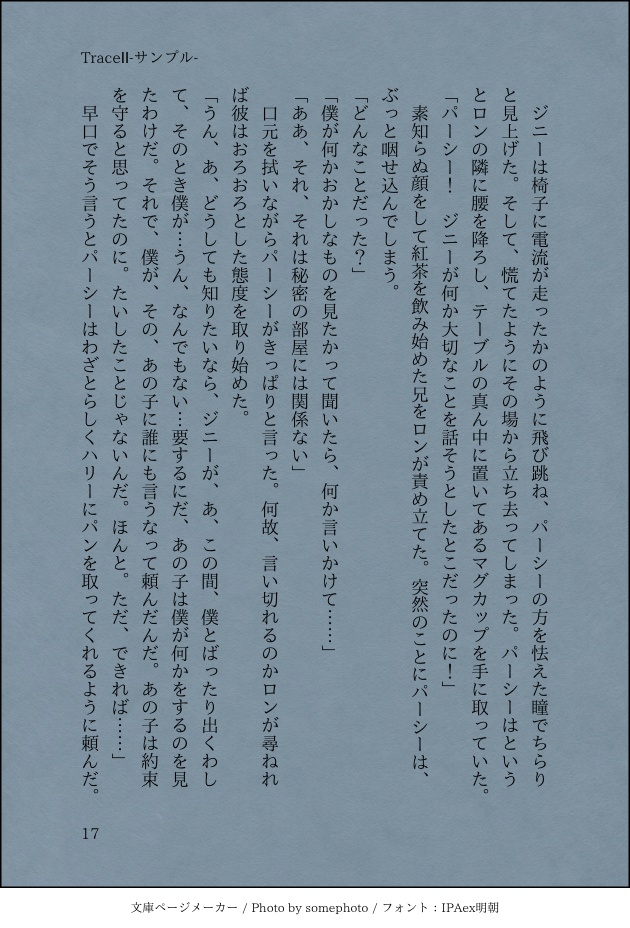 TraceⅡ-サンプル-
　ジニーは椅子に電流が走ったかのように飛び跳ね、パーシーの方を怯えた瞳でちらり
と見上げた。そして、慌てたようにその場から立ち去ってしまった。パーシーはという
とロンの隣に腰を降ろし、テーブルの真ん中に置いてあるマグカップを手に取っていた。
「パーシー！　ジニーが何か大切なことを話そうとしたとこだったのに！」
　素知らぬ顔をして紅茶を飲み始めた兄をロンが責め立てた。突然のことにパーシーは、
ぶっと咽せ込んでしまう。
「どんなことだった？」
「僕が何かおかしなものを見たかって聞いたら、何か言いかけて……」
「ああ、それ、それは秘密の部屋には関係ない」
　口元を拭いながらパーシーがきっぱりと言った。何故、言い切れるのかロンが尋ねれ
ば彼はおろおろとした態度を取り始めた。
「うん、あ、どうしても知りたいなら、ジニーが、あ、この間、僕とばったり出くわし
て、そのとき僕が…うん、なんでもない…要するにだ、あの子は僕が何かをするのを見
たわけだ。それで、僕が、その、あの子に誰にも言うなって頼んだんだ。あの子は約束
を守ると思ってたのに。たいしたことじゃないんだ。ほんと。ただ、できれば……」
　早口でそう言うとパーシーはわざとらしくハリーにパンを取ってくれるように頼んだ。
17
文庫ページメーカー / Photo by somephoto / フォント：IPAex明朝